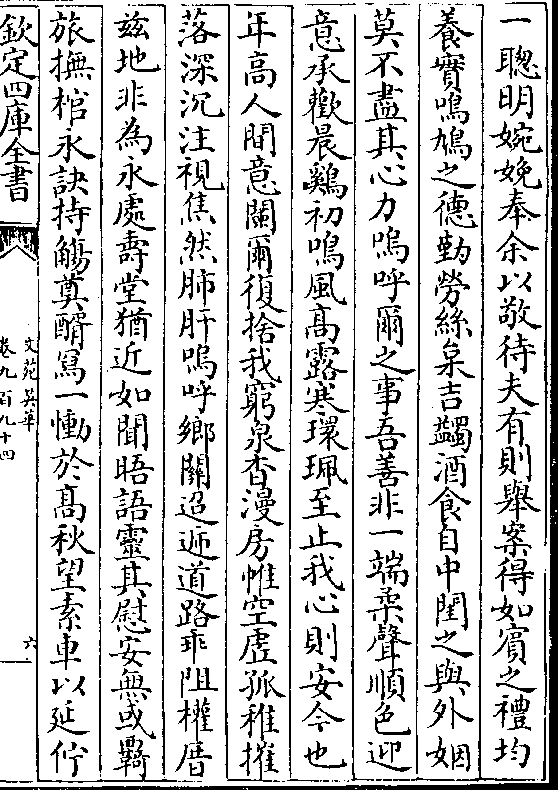 一聰明婉娩奉余以敬待夫有則舉案得如賓之禮均
養實鳴鳩之德勤勞絲枲吉蠲酒食自中閨之與外姻
莫不盡其心力嗚呼爾之事吾善非一端柔聲順色迎
意承歡晨鷄初鳴風髙露寒環珮至止我心則安今也
年高人間意闌爾復捨我窮泉杳漫房帷空虛孤稚摧
落深沉注視焦然肺肝嗚呼鄉關迢遞道路乖阻權厝
兹地非為永處壽堂猶近如聞晤語靈其慰安無或羇
旅撫棺永訣持觴奠酹寫一慟於髙秋望素車以延佇
欽定四庫全書
文苑英華
卷九百九十四
六